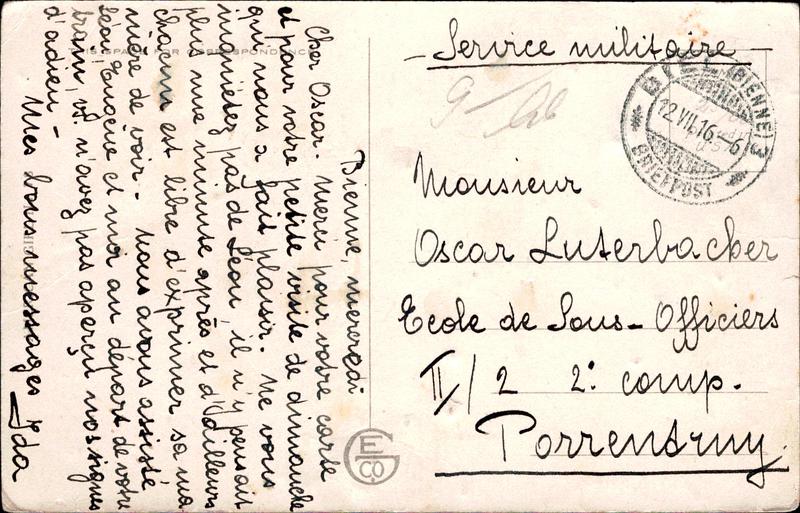 THIS SPACE FOR CORRESPONDENCE
Bienne, mercredi
Cher Oscar. Merci pour votre carte
et pour votre petite visite de dimanche
qui nous a fait plaisir. Ne vous
inquiétez pas de Léon, il n'y pensait
plus une minute après et d'ailleurs
chacun est libre d'exprimer sa ma-
nière de voir. Nous avons assisté
Léon, Eugène et moi au départ de votre
train, vs. n'avez pas aperçu nos signes
d'adieu -
Mes bons messages Ida
Service militaire
BIEL (BIENNE) 3
12.VII.16.-6
BRIEFPOST
Monsieur
Oscar Luterbacher
Ecole de Sous-Officiers
II/2 2e comp.
Porrentruy.
EG CO.